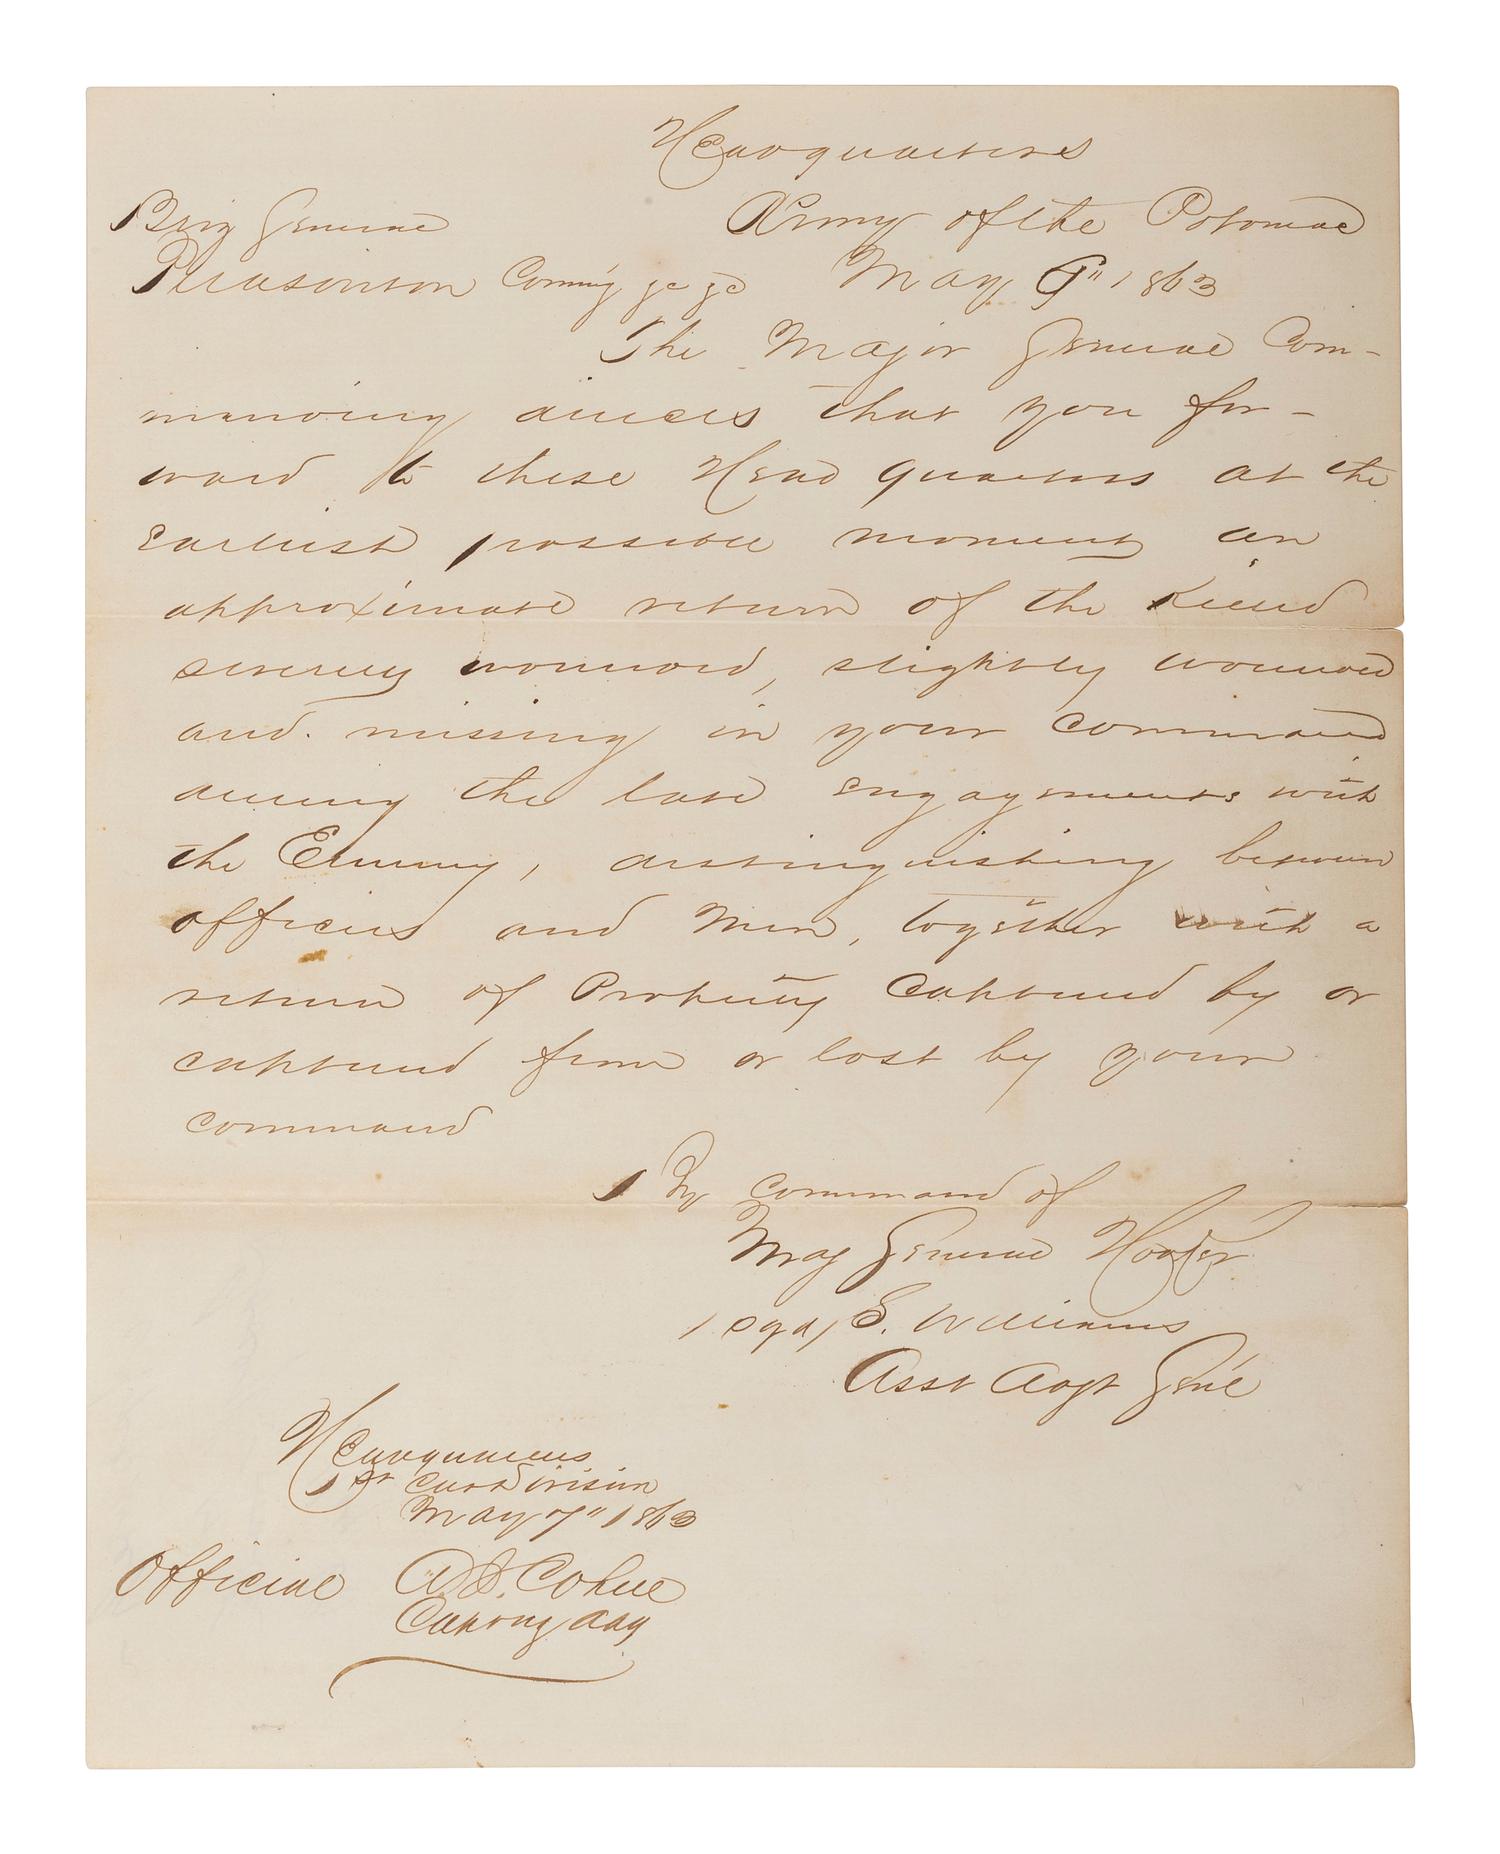 Headquarters
Brig General Army of the Potomac
Pleasonton Comm'g &c &c May 6" 1863
The Major General Com-
manding directs that you for-
ward to these Head quarters at the
Earliest possible moment an
approximate return of the Killed
severely wounded, slightly wounded
and missing in your command
during the late engagements with
the Enemy, distinguishing between
officers and Men, together with a
return of Property Captured by or
captured from or lost by your
command
By command of
Maj General Hooker
sgd, S. Williams
Asst Adgt Gen'l
Headquarters
1st Cav Division
May 7" 1863
Official A J. Cohen
Capt AAG